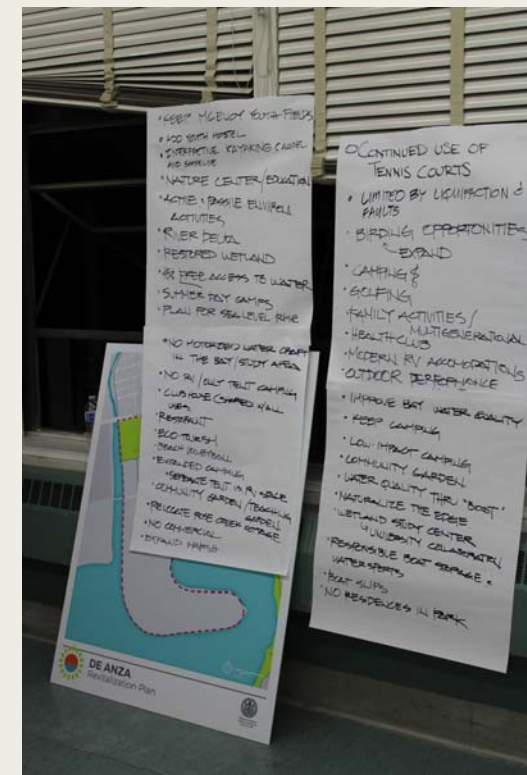 • KEEP MCEVOY YOUTH FIELDS
• ADD YOUTH HOSTEL
• INTERPRETIVE KAYAKING CHANNEL
AND SHORELINE
• NATURE CENTER/EDUCATION
• ACTIVE & PASSIVE
ACTIVITIES
• RIVER DELTA
• RESTORED WETLAND
FREE ACCESS TO WATER
• SUMMER DAY CAMPS
• PLAN FOR SEA LEVEL RISE
• NO MOTORIZED WATER CRAFT
IN THE BAY/STUDY AREA
• NO RV/ONLY TENT CAMPING
• CLUBHOUSE (SHARED W/ALL
USES
• RESTAURANT
• ECO TOURISM
• BEACH VOLLEYBALL
• EXPANDED CAMPING
• SEPARATE TENT VS RV SPACE
• COMMUNITY GARDEN/TEACHING
GARDEN
• RELOCATE ROSE CREEK COTTAGE
• NO COMMERCIAL
• EXPAND
CONTINUED USE OF
TENNIS COURTS
• LIMITED BY LIQUIFACTION &
FAULTS
• BIRDING OPPORTONITIES
EXPAND
• CAMPING &
• GOLFING
• FAMILY ACTIVITIES/
MULTIGENERATIONAL
• HEALTH CLUB
• MODERN RV ACCOMODATIONS
• OUTDOOR PERFORMANCE
• IMPROVE BAY WATER QUALITY
• KEEP CAMPING
• LOW IMPACT CAMPING
• COMMUNITY GARDEN
• WATER QUALITY THRU "BOAT"
• NATURALIZE THE EDGE
• WETLAND STUDY CENTER
UNIVERSITY COLLABORATION
• RESPONSIBLE BOAT STORAGE &
WATERSPORTS
• BOAT SLIPS
• NO RESIDENCES IN PARK
DE ANZA
Revitalization Plan